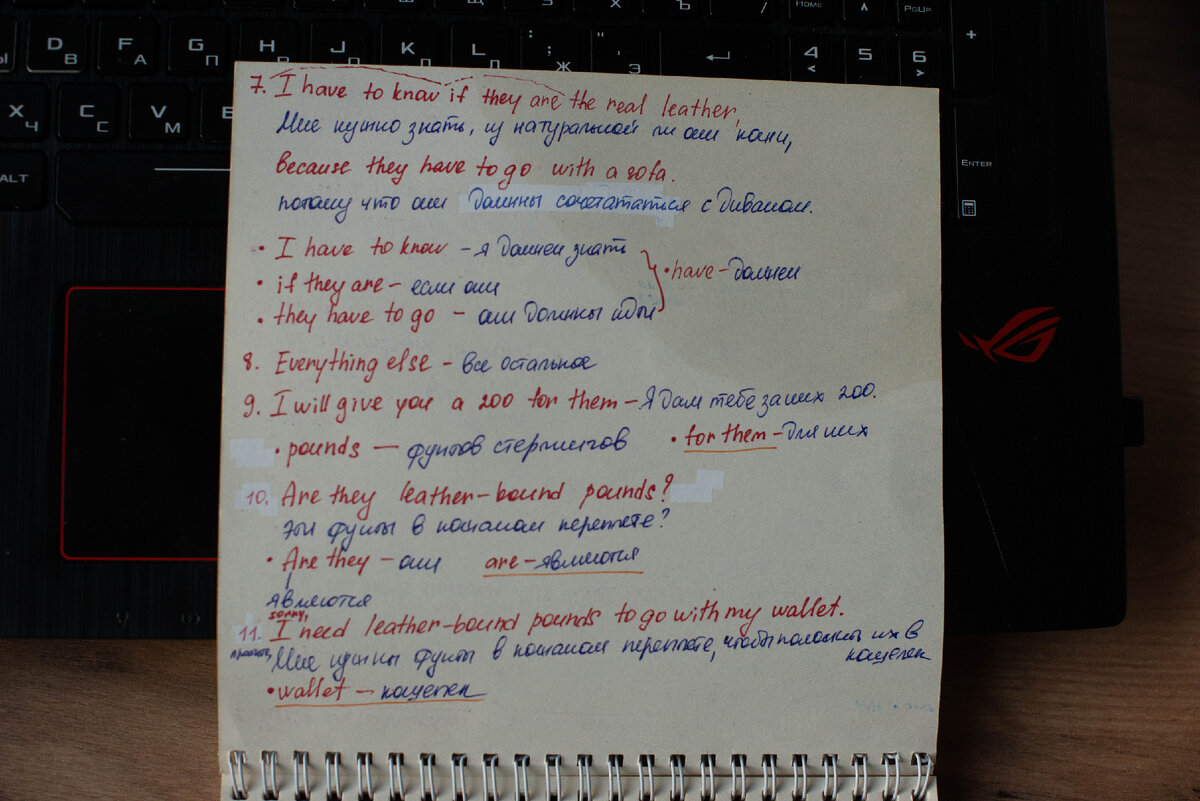 7. I have to know if they are the real leather,
Мне нужно знать, из натуральной ли они кожи,
because they have to go with a sofa.
потому что они должны сочетататься с диваном.
• I have to know - я должен знать
• if they are - если они
• have - должен
• they have to go - они должны идти
8. Everything else - все остальное
9. I will give you a 200 for them - Я дам тебе за них 200.
• pounds — фунтов стерлингов • for them - для них
10. Are they leather-bound pounds?
Эти фунты в кожаном переплете?
• Are they - они are - являются
являются
sorry,
11. I need leather-bound pounds to go with my wallet.
Мне нужны фунты в кожаном переплете, чтобы положить их в
кошелек
• wallet — кошелек
D В F А G П H Р J О K Л L Д : ; Ж " ' Э 4 < 5 6 >
X Ч C С V М B
ALT
HOME
PGUP
+
ENTER